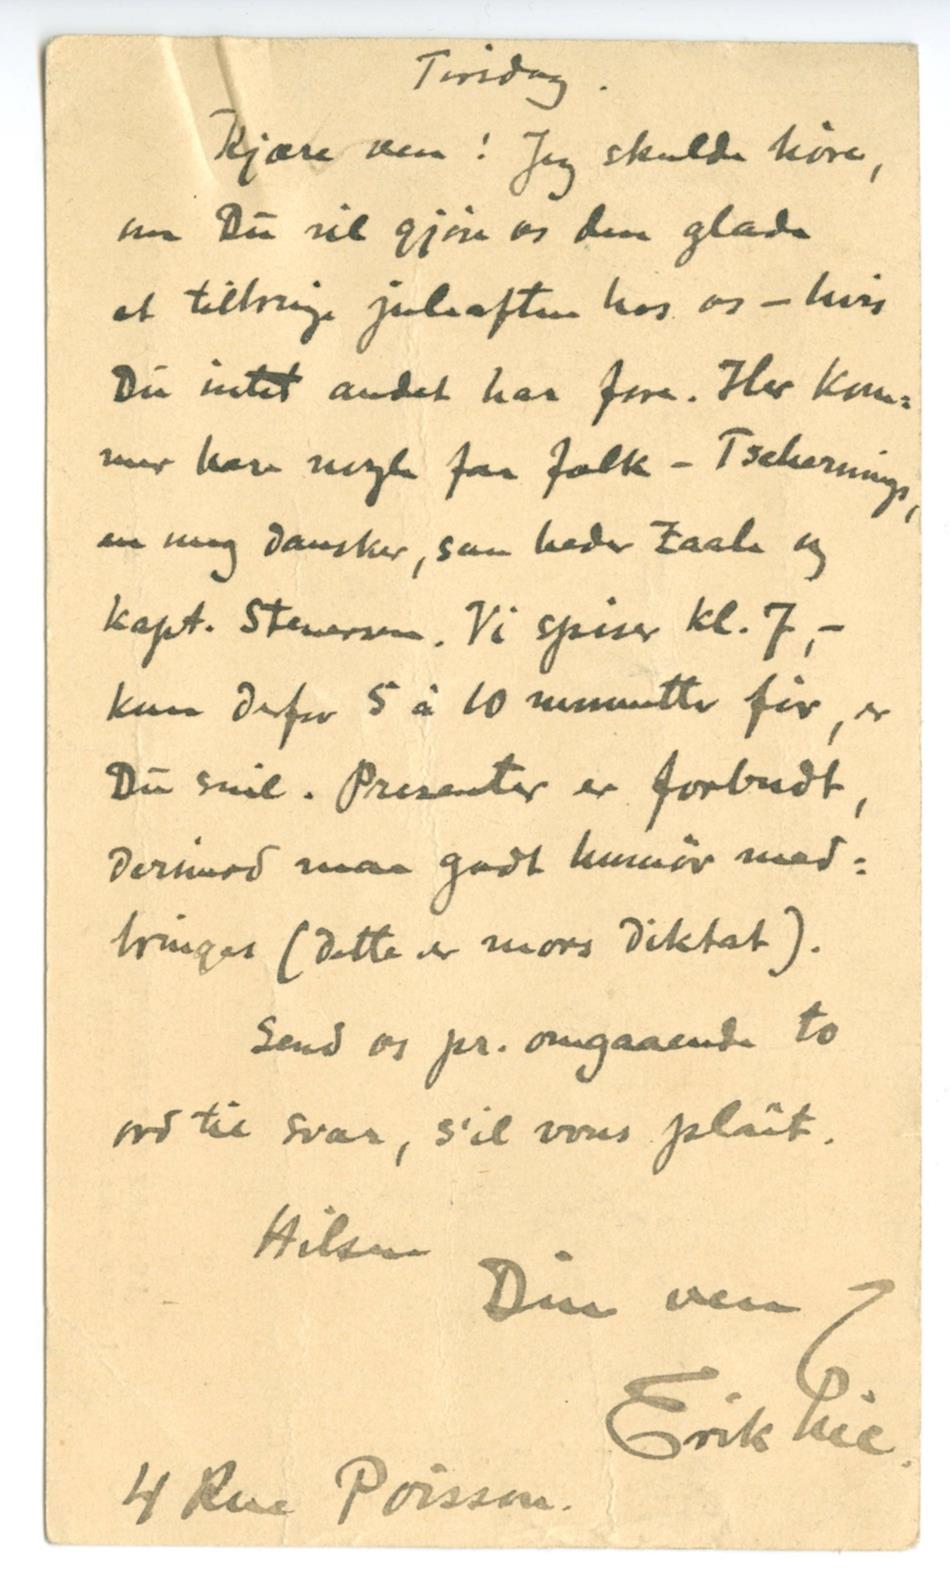 Tirsdag.
Kjære ven! Jeg skulde høre,
om Du vil gjøre os den glæde
at tilbringe juleaften hos os – hvis
Du intet andet har fore. Her kom=
mer bare nogle faa folk – Tschernings,
en ung dansker, som heder Zaale og
kapt. Stenersen. Vi spiser kl. 7, –
kom derfor 5 à 10 minutter før, er
Du snil. Presenter er forbudt,
derimod maa godt humør med=
bringes (dette er mors diktat).
Send os pr. omgaaende to
ord til svar, s'il vous plaît.
Hilsen
Din ven
Erik Lie.
4 Rue Poisson.